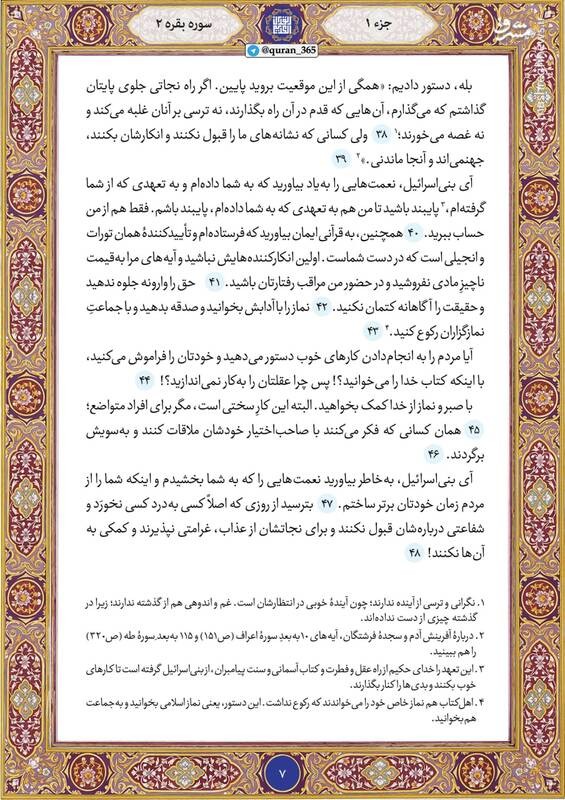 جزء ۱
سوره بقره ۲
مشرق
@quran_365
بله، دستور دادیم: «همگی از این موقعیت بروید پایین. اگر راه نجاتی جلوی پایتان
گذاشتم که می‌گذارم، آن‌هایی که قدم در آن راه بگذارند، نه ترسی بر آنان غلبه می‌کند و
نه غصه می‌خورند؛۱ ۳۸ ولی کسانی که نشانه‌های ما را قبول نکنند و انکارشان بکنند،
جهنمی‌اند و آنجا ماندنی.»۲ ۳۹
آی بنی‌اسرائیل، نعمت‌هایی را به‌یاد بیاورید که به شما داده‌ام و به تعهدی که از شما
گرفته‌ام،۳ پایبند باشید تا من هم به تعهدی که به شما داده‌ام، پایبند باشم. فقط هم از من
حساب ببرید. ۴۰ همچنین، به قرآنی ایمان بیاورید که فرستاده‌ام و تأییدکنندهٔ همان تورات
و انجیلی است که در دست شماست. اولین انکارکننده‌هایش نباشید و آیه‌های مرا به‌قیمت
ناچیزِ مادی نفروشید و در حضور من مراقب رفتارتان باشید. ۴۱ حق را وارونه جلوه ندهید
و حقیقت را آگاهانه کتمان نکنید. ۴۲ نماز را با آدابش بخوانید و صدقه بدهید و با جماعتِ
نمازگزاران رکوع کنید.۴ ۴۳
آیا مردم را به انجام‌دادن کارهای خوب دستور می‌دهید و خودتان را فراموش می‌کنید،
با اینکه کتاب خدا را می‌خوانید؟! پس چرا عقلتان را به‌کار نمی‌اندازید؟! ۴۴
با صبر و نماز از خدا کمک بخواهید. البته این کارِ سختی است، مگر برای افراد متواضع؛
۴۵ همان کسانی که فکر می‌کنند با صاحب‌اختیار خودشان ملاقات کنند و به‌سویش
برگردند. ۴۶
آی بنی‌اسرائیل، به‌خاطر بیاورید نعمت‌هایی را که به شما بخشیدم و اینکه شما را از
مردم زمان خودتان برتر ساختم. ۴۷ بترسید از روزی که اصلاً کسی به‌درد کسی نخورَد و
شفاعتی درباره‌شان قبول نکنند و برای نجاتشان از عذاب، غرامتی نپذیرند و کمکی به
آن‌ها نکنند! ۴۸
۱. نگرانی و ترسی از آینده ندارند؛ چون آیندهٔ خوبی در انتظارشان است. غم و اندوهی هم از گذشته ندارند؛ زیرا در
گذشته چیزی از دست نداده‌اند.
۲. دربارهٔ آفرینش آدم و سجدهٔ فرشتگان، آیه‌های ۱۰ به‌بعدِ سورهٔ اعراف (ص۱۵۱) و ۱۱۵ به‌بعدِ سورهٔ طه (ص۳۲۰)
را هم ببینید.
۳. این تعهد را خدای حکیم از راه عقل و فطرت و کتاب آسمانی و سنت پیامبران، از بنی‌اسرائیل گرفته است تا کارهای
خوب بکنند و بدی‌ها را کنار بگذارند.
۴. اهل‌کتاب هم نماز خاص خود را می‌خواندند که رکوع نداشت. این دستور، یعنی نماز اسلامی بخوانید و به‌جماعت
هم بخوانید.
۷